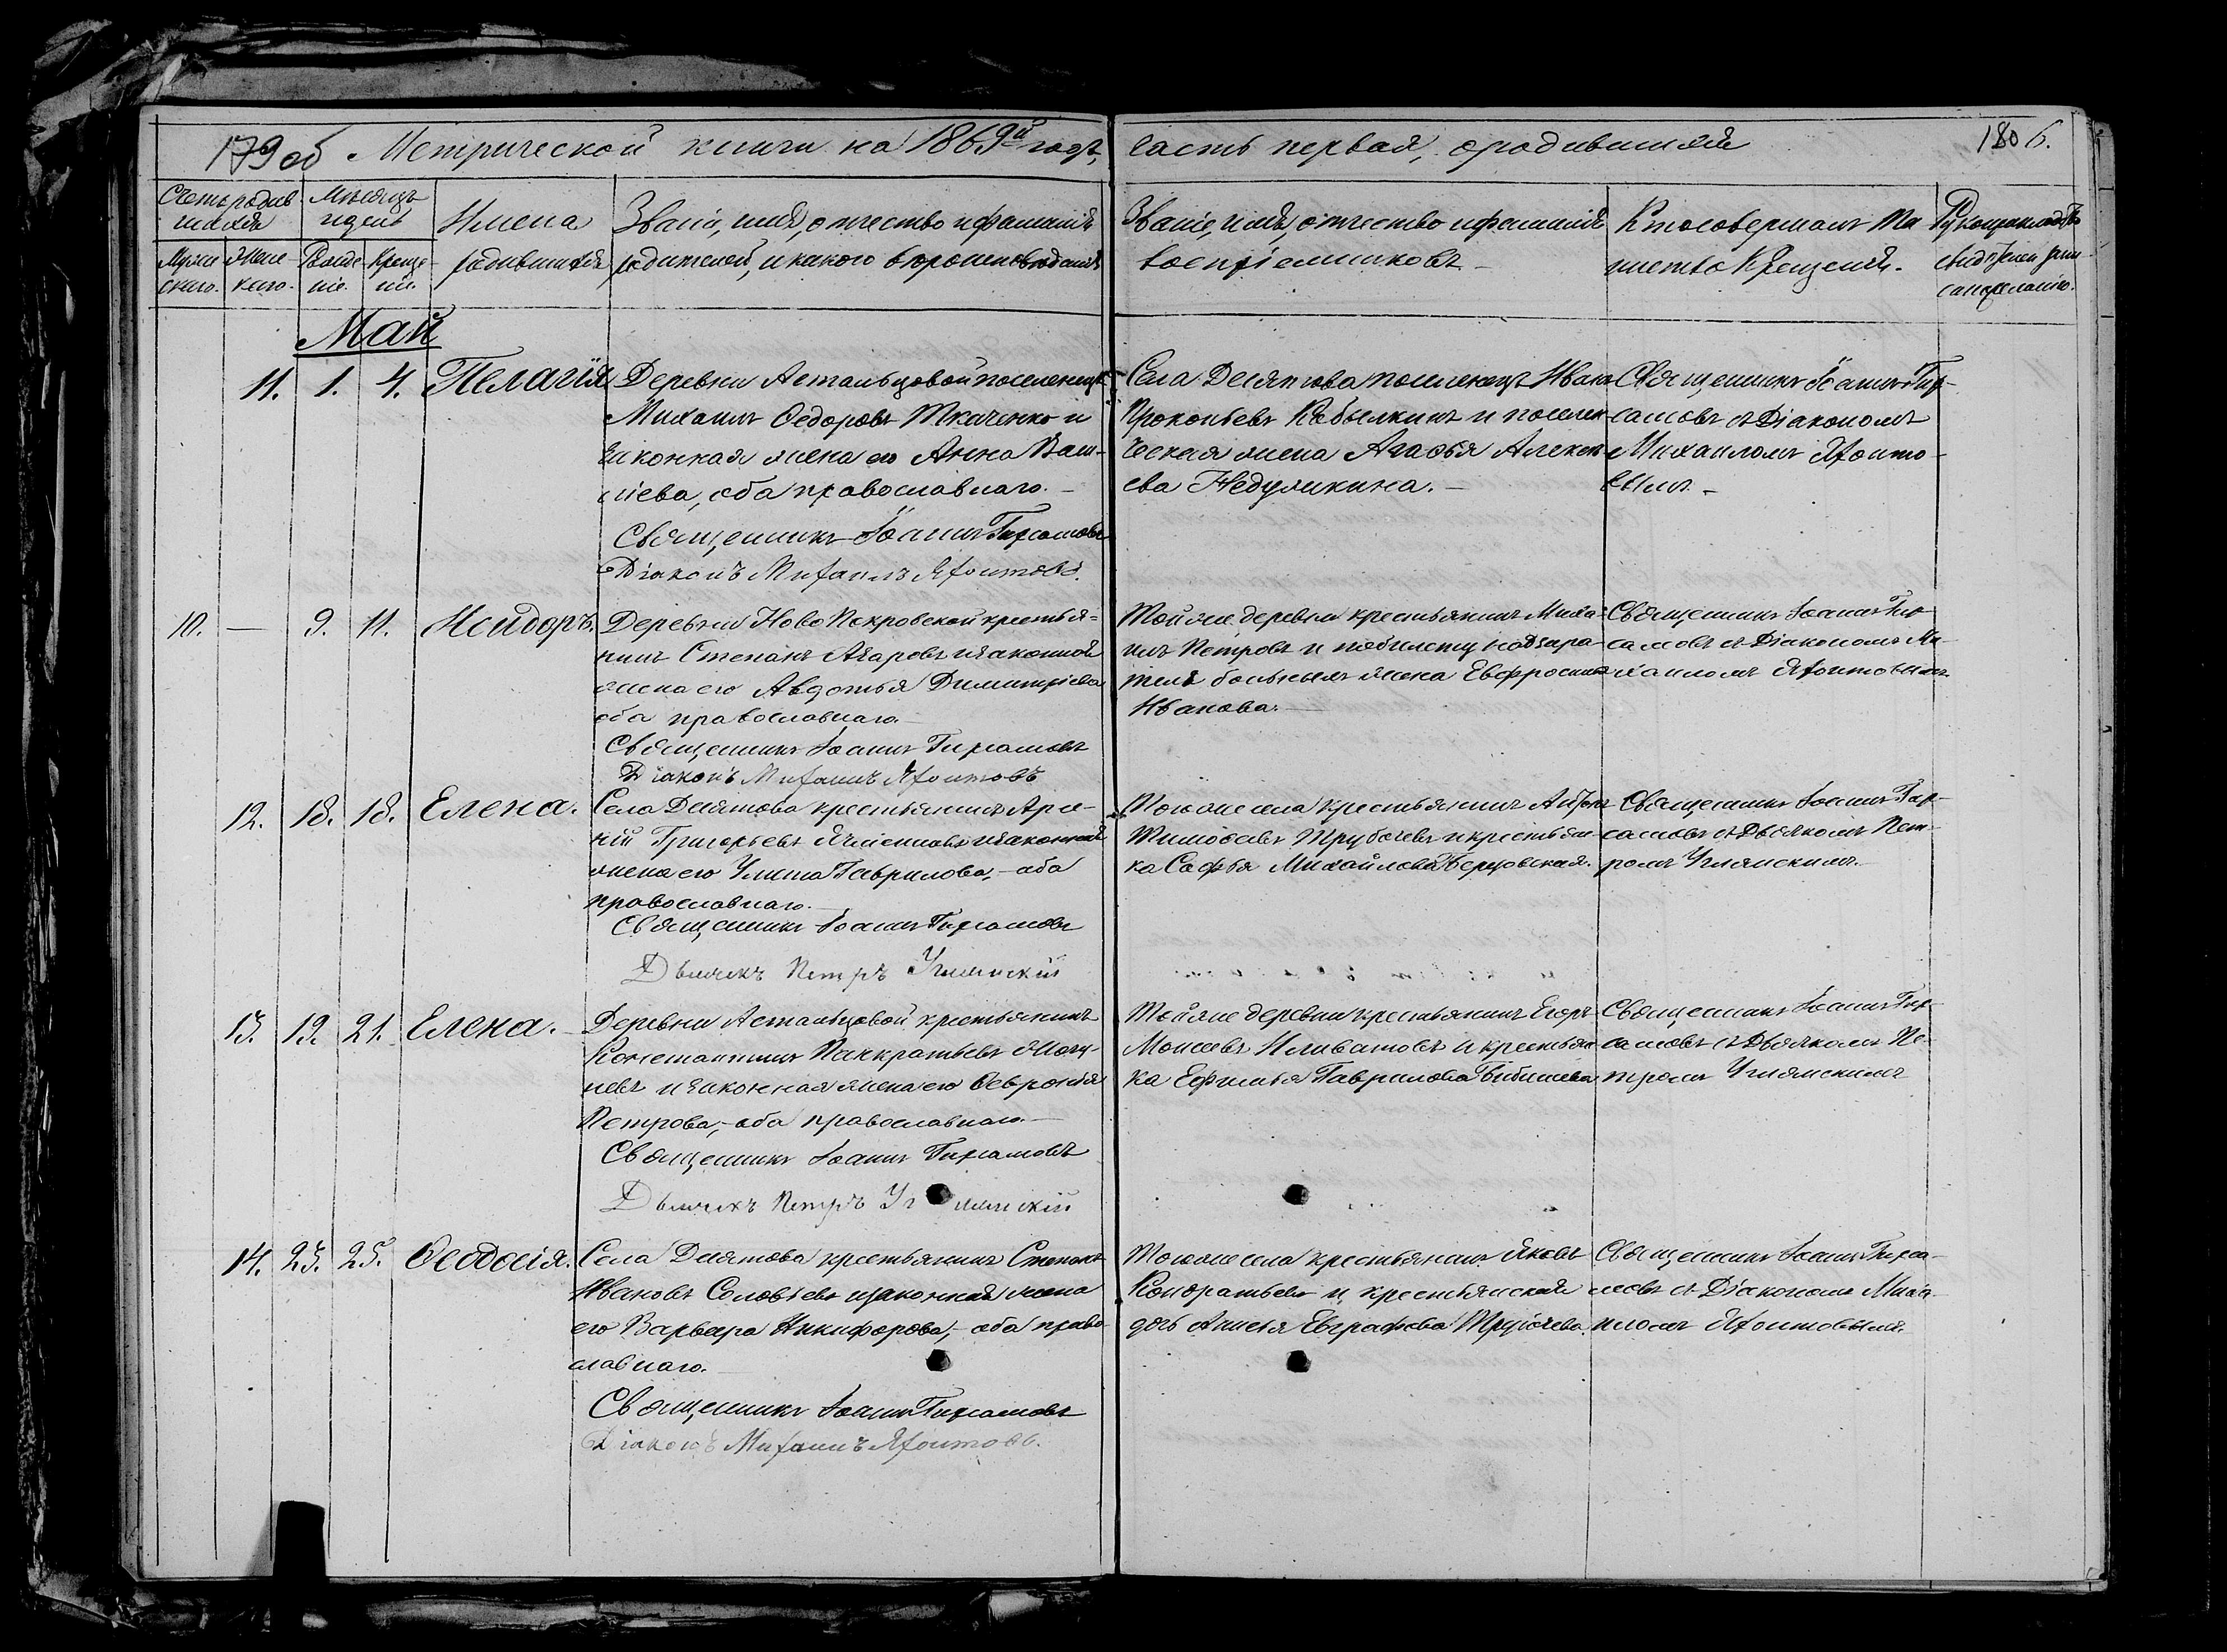 179 об Метрической книги на 1869й годъ, часть первая, о родившихся 180 6.
Счетъ родив
шихся
Муже
скаго.
Жене
скаго.
Мѣсяцъ
и день
Рожде
ніе.
Креще
ніе.
Имена
родившихся
Званіе, имя, отчество и фамилія
родителей, и какого вѣроисповѣданія
Званіе, имя, отчество и фамилія
воспріемниковъ
Кто совершалъ Та
инство Крещенія.
Рукоприкладство
свидѣтелей записи
по желанію.
Май
11. 1. 4. Пелагія
Деревни Астальцовой поселенецъ
Михаилъ Федоровъ Ткаченко и
законная жена его Анна Васи-
лева, оба православнаго.
Священникъ Іоаннъ Гирсамовъ
Діаконъ Михаилъ Яхонтовъ.
Села Десятова поселенецъ Иванъ
Прокопьевъ Кобылкинъ и поселен
ческая жена Агафья Алексѣ
ева Недужкина.
Священникъ Іоаннъ Гир-
самовъ съ Діакономъ
Михаиломъ Яхонто-
вымъ.
10. — 9. 11. Исидоръ.
Деревни Ново Покровской крестья-
нинъ Степанъ Азаровъ и законная
жена его Авдотья Димитріева
оба православнаго.
Священникъ Іоаннъ Гирсамовъ
Діаконъ Михаилъ Яхонтовъ
Той же деревни крестьянинъ Миха-
илъ Петровъ и по билету надзира-
теля больныхъ жена Евфросинія
Иванова.
Священникъ Іоаннъ Гир-
самовъ съ Діакономъ Ми-
хаиломъ Яхонтовымъ.
12. 18. 18. Елена.
Села Десятова крестьянинъ Арсе-
ній Григорьевъ и законная
жена его Улита Гаврилова, - оба
православнаго.
Священникъ Іоаннъ Гирсамовъ
Дьячекъ Петръ Углянскій
Того же села крестьянинъ
Тимофеевъ Трубачевъ и крестьян
ка Софья Михайлова Берговская.
Священникъ Іоаннъ Гир-
самовъ съ Дьячкомъ Пет-
ромъ Углянскимъ.
13. 19. 21. Елена.
Деревни Астальцовой крестьянинъ
Константинъ Панкратьевъ
невъ и законная жена его Февронія
Петрова, - оба православнаго.
Священникъ Іоаннъ Гирсамовъ
Дьячекъ Петръ Углянскій
Той же деревни крестьянинъ Егоръ
Моисеевъ и крестьян
ка Ефимья Гаврилова Бибишева
Священникъ Іоаннъ Гир-
самовъ съ Дьячкомъ Пе-
тромъ Углянскимъ
14. 23. 25. Феодосія.
Села Десятова крестьянинъ Степанъ
Ивановъ Соловьевъ и законная жена
его Варвара Никифорова, - оба право-
славнаго.
Священникъ Іоаннъ Гирсамовъ
Діаконъ Михаилъ Яхонтовъ.
Того же села крестьянинъ Яковъ
Кондратьевъ и крестьянская
дочь Анисья Евграфова Трубачева.
Священникъ Іоаннъ Гирса-
мовъ съ Діакономъ Миха-
иломъ Яхонтовымъ.